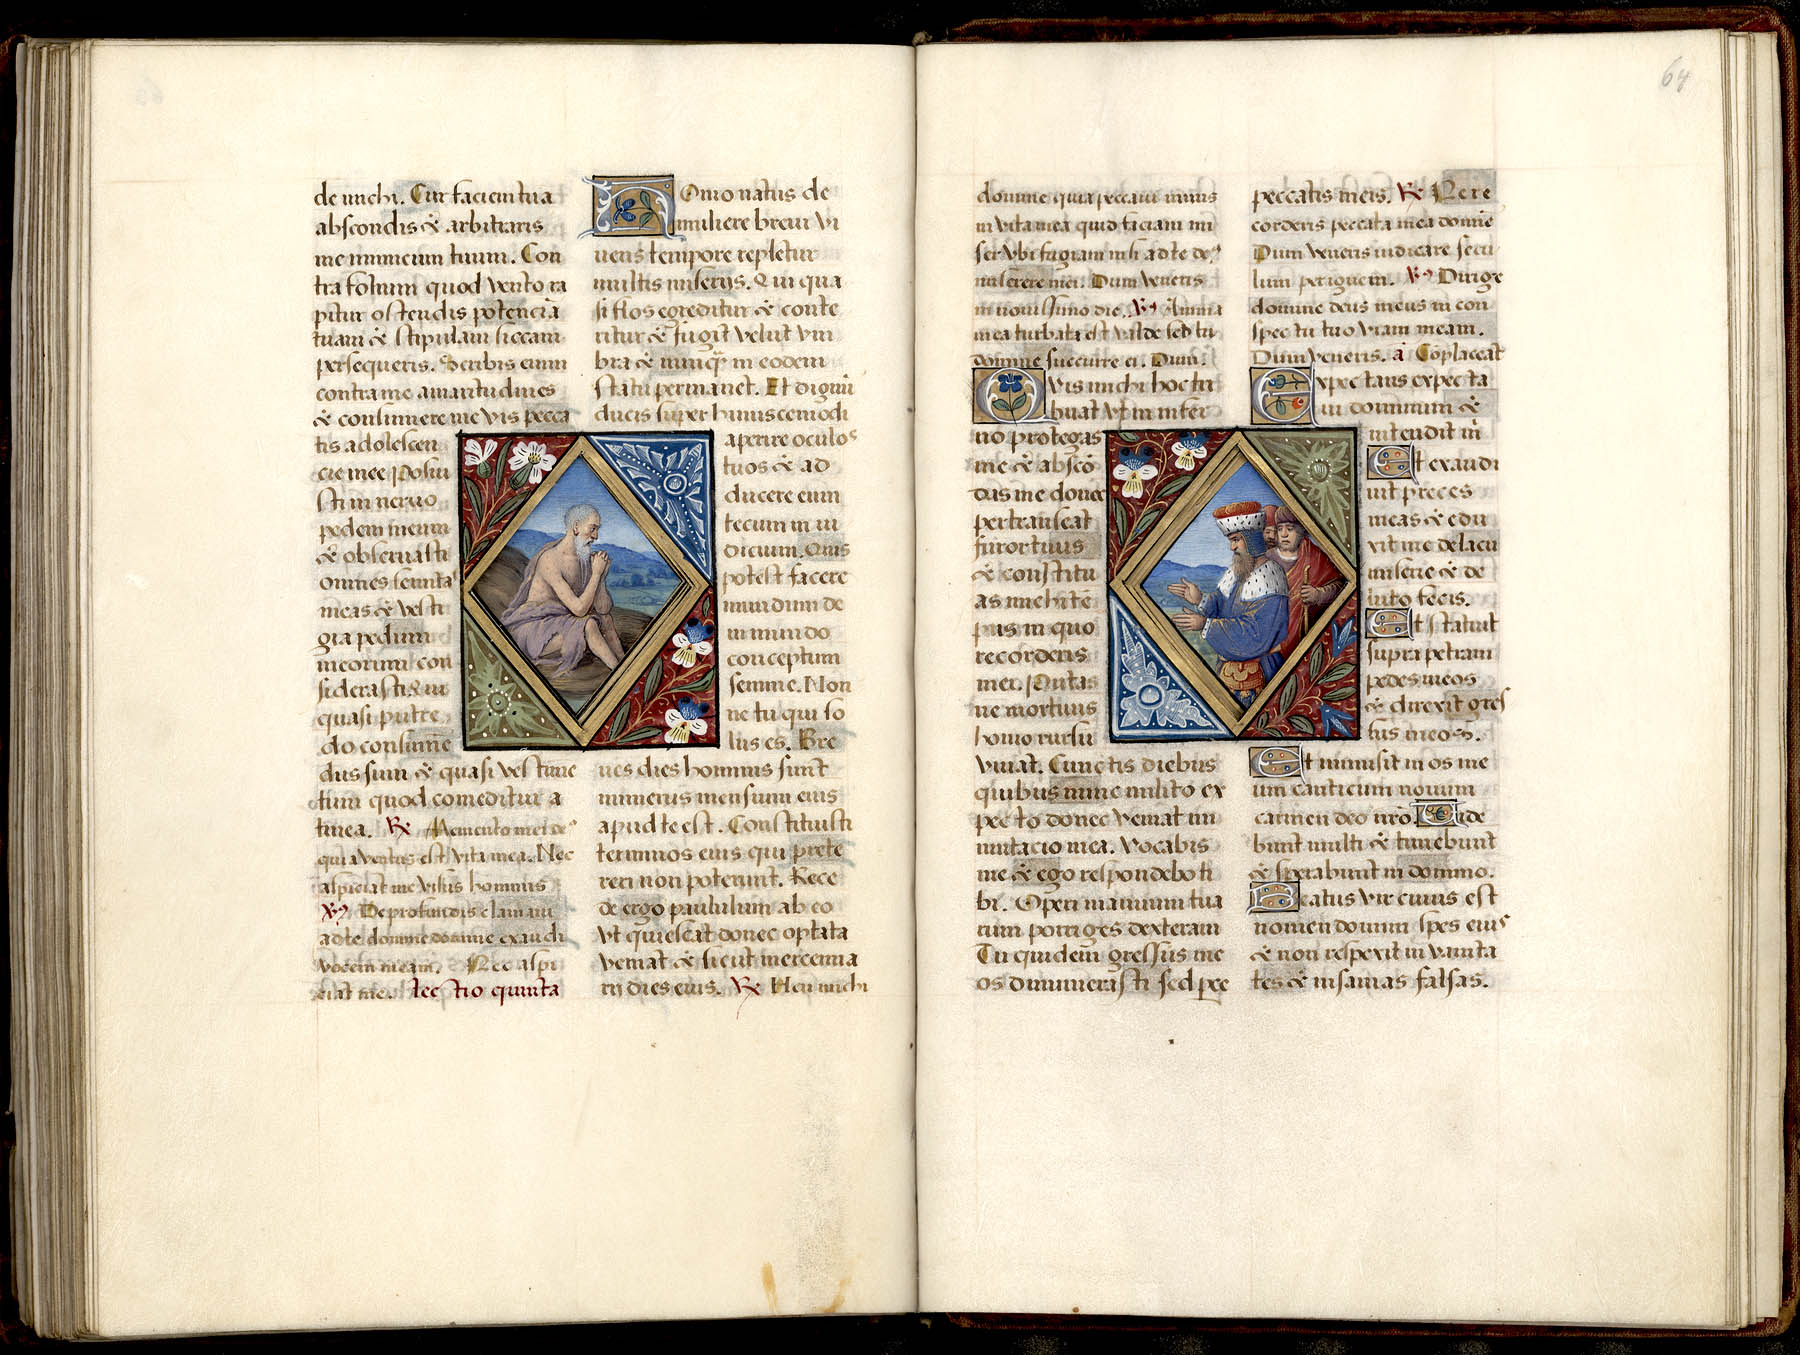 de michi. Cur faciem tua
abscondis & arbitraris
me inimicum tuum. Con
tra folium quod vento ra
pitur ostendis potenciā
tuam & stipulam siccam
persequeris. Scribis enim
contra me amaritudines
& consumere me vis pecca
tis adolescen
cie mee Posui
sti in neruo
pedem meum
& obseruasti
omnes semita⁹
meas & vesti
gia pedum
meorum con
siderasti. Qui
quasi putre
do consumē
dus sum & quasi vestime
tum quod comeditur a
tinea. R̷ Memento mei de⁹
quia ventus est vita mea. Nec
aspiciat me visus hominis
V̷ De profundis clamaui
ad te domine domine exaudi
vocem meam. Nec aspi
ciat me. lectio quinta
Homo natus de
muliere breui vi
uens tempore repletur
multis miserijs. Qui qua
si flos egreditur & conte
ritur & fugit velut vm
bra & nunqʒ in eodem
statu permanet. Et dignū
ducis super huiuscemodi
aperire oculos
tuos & ad
ducere eum
tecum in iu
dicium. Quis
potest facere
mundum de
inmundo
conceptum
semine. Non
ne tu qui so
lus es. Bre
ues dies hominis sunt
numerus mensium eius
apud te est. Constituisti
terminos eius qui prete
reri non poterunt. Rece
de ergo paululum ab eo
vt quiescat donec optata
veniat & sicut mercenna
rii dies eius. R̷ Heu michi
64
domine quia peccaui nimis
in vita mea quid faciam mi
ser vbi fugiam nisi ad te de⁹
miserere mei. Dum veneris
in nouissimo die. V̷ Anima
mea turbata est valde sed tu
domine succurre ei. Dum.
Quis michi hoc tri
buat vt in infer
no protegas
me & abscō
das me donec
pertranseat
furor tuus
& constitu
as michi tē
pus in quo
recorderis
mei. Putas
ne mortuus
homo rursū
viuat. Cunctis diebus
quibus nunc milito ex
pecto donec veniat im
mutacio mea. Vocabis
me & ego respondebo ti
bi. Operi manuum tua
rum porriges dexteram
Tu quidem gressus me
os dinumerasti sed parce
peccatis meis. R̷ Ne re
corderis peccata mea domine
Dum veneris iudicare secu
lum per ignem. V̷ Dirige
domine deus meus in con
spectu tuo viam meam.
Dum veneris. ā Cōplaceat
Expectans expecta
ui dominum &
intendit m̄
Et exaudi
uit preces
meas & edu
xit me de lacu
miserie & de
luto fecis.
Et statuit
supra petram
pedes meos
& direxit gres
sus meos.
Et inmisit in os me
um canticum nouum
carmen deo nr̄o. Vide
bunt multi & timebunt
& sperabunt in domino.
Beatus vir cuius est
nomen domini spes eius
& non respexit in vanita
tes & insanias falsas.